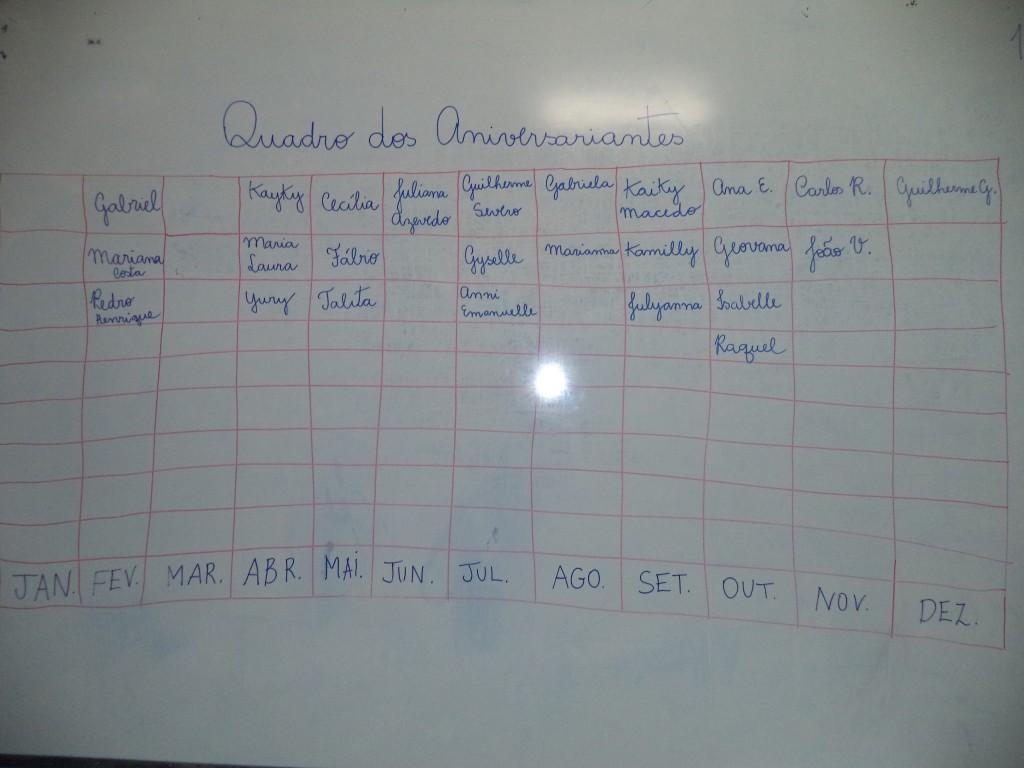 Quadro dos Aniversariantes
Gabriel Kayky Cecília Juliana Azevedo Guilherme Severo Gabriela Kaity Macedo Ana E. Carlos R. Guilherme G.
Mariana Costa Maria Laura Fábio Gyselle Marianna Kamilly Geovana João V.
Pedro Henrique Yury Talita Anni Emanuelle Julyanna Isabelle
Raquel
JAN. FEV. MAR. ABR. MAI. JUN. JUL. AGO. SET. OUT. NOV. DEZ.